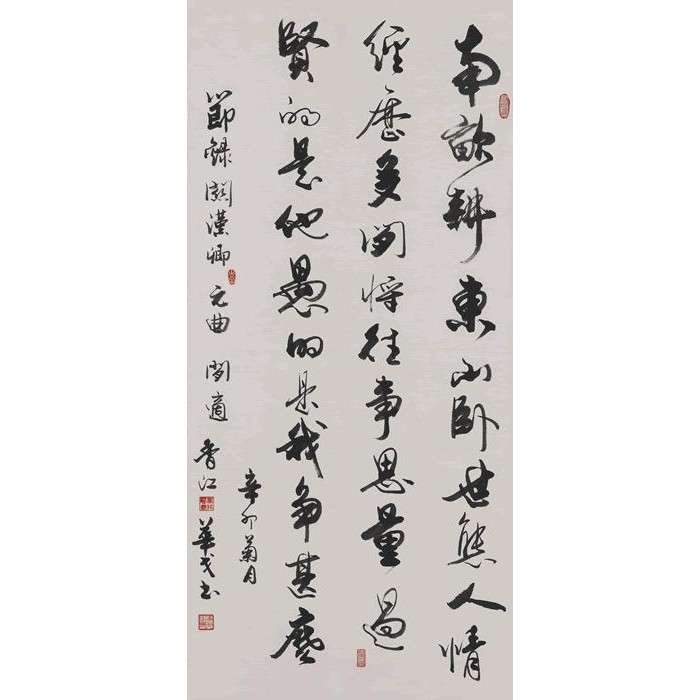 南畝耕東山臥世態人情
經歷多閑將往事思量過
賢的是他愚的是我爭甚麼
辛卯菊月
節錄關漢卿元曲閑適
香江華戈书